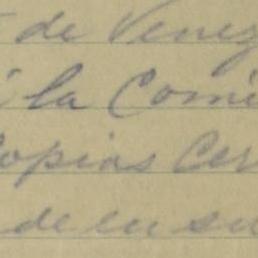 de Venez
la Comi
Copias Cer
de en su